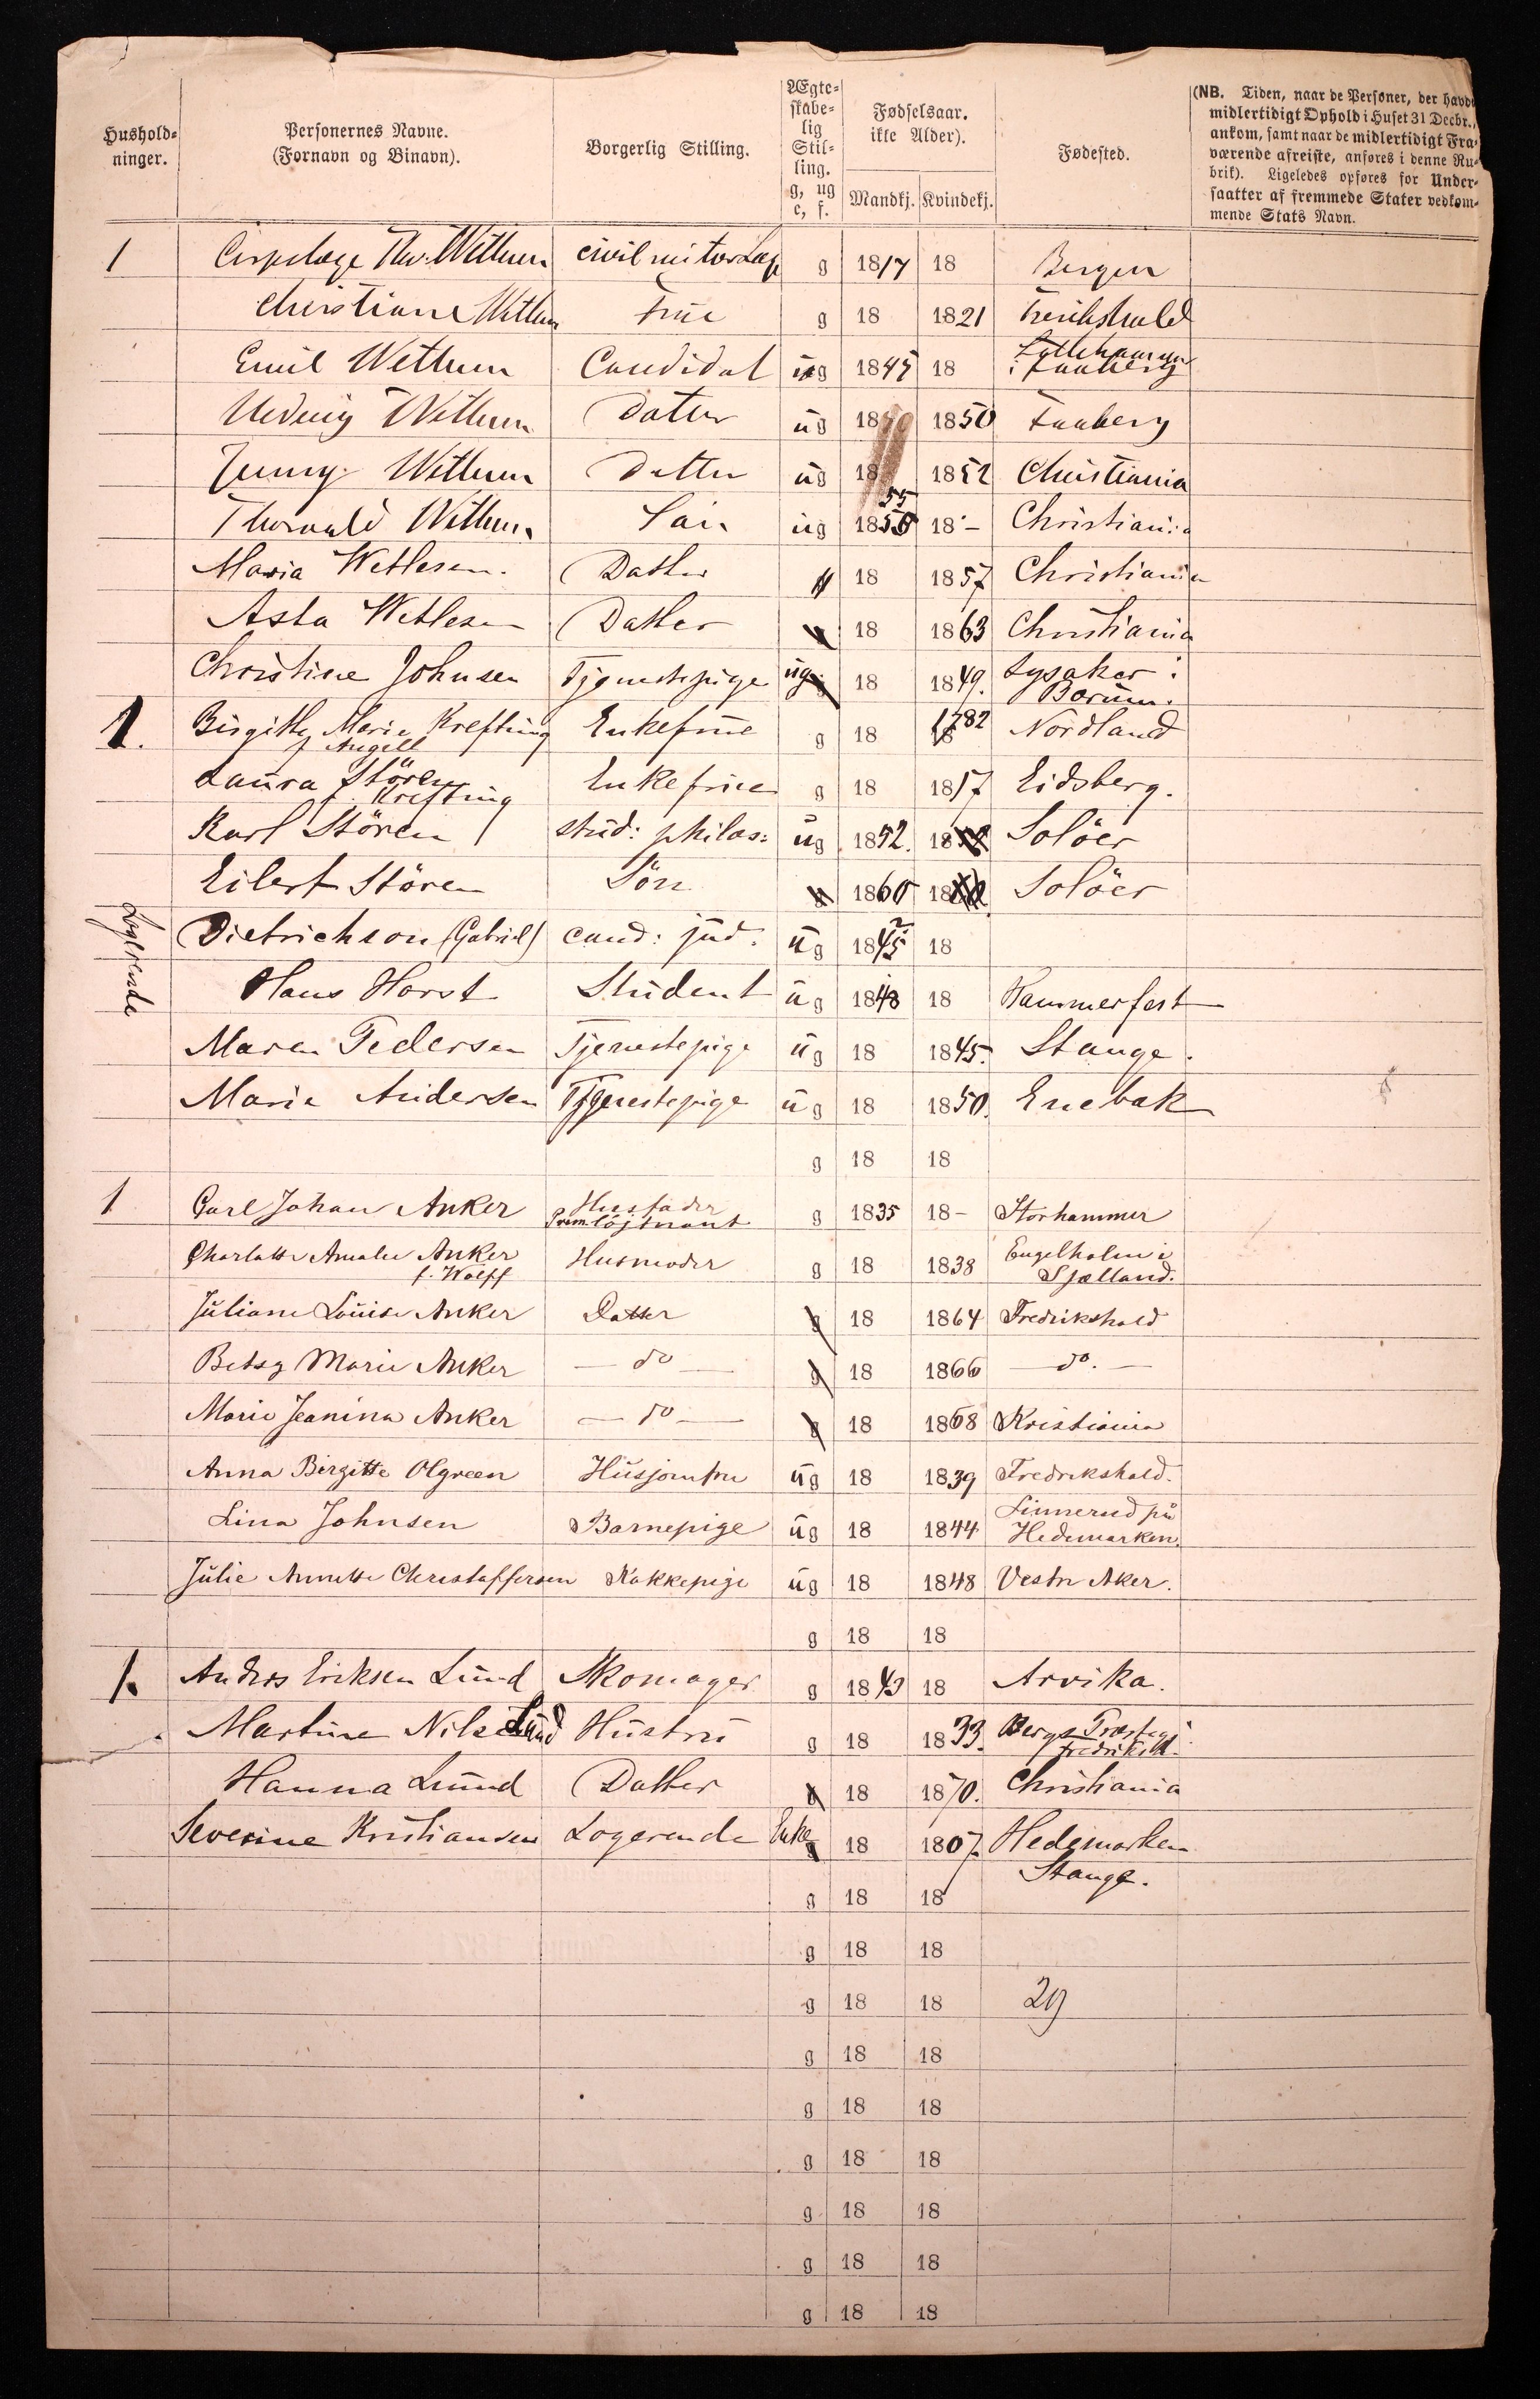 Hushold-
ninger.
Personernes Navne.
(Fornavn og Binavn).
Borgerlig Stilling.
Ægte-
skabe-
lig
Stil-
ling.
g, ug
e, f.
Fødselsaar.
ikke Alder).
Mandkj. Kvindekj.
Fødested.
(NB. Tiden, naar de Personer, der havde
midlertidigt Ophold i Huset 31 Decbr.,
ankom, samt naar de midlertidigt Fra-
værende afreiste, anføres i denne Ru-
brik). Ligeledes opføres for Under-
saatter af fremmede Stater vedkom-
mende Stats Navn.
1 Corpslæge Thv. Wetlesen g 1817 18 Bergen
Christiane Wetlesen Frue g 18 1821 Fredrikshald
Emil Wetlesen Candidat ug 1845 18 Lillehammer
i Faaberg
Hedvig Wetlesen Datter ug 18 1850 Faaberg
Jenny Wetlesen Datter ug 18 1852 Christiania
Thorvald Wetlesen Søn ug 1855 18 - Christiania
Maria Wetlesen. Datter 18 1857 Christiania
Asta Wetlesen Datter 18 1863 Christiania
Christine Johnsen Tjenestepige ug 18 1849. Lysaker i
Bærum.
1. Birgitte Marie Krefting Enkefrue g 18 1782 Nordland
f. Angell
Laura Stören Enkefrue g 18 1817 Eidsberg.
f. Krefting
Karl Stören stud: philos: ug 1852. 18 Solöer
Eilert Stören Sön 1860 18 Solöer
Logerende
Dietrichson (Gabriel) cand: jud. ug 1845 ? 18
Hans Horst Student ug 1848 18 Hammerfest
Maren Pedersen Tjenestepige ug 18 1845. Stange.
Marie Andersen Tjenestepige ug 18 1850. Enebak
g 18 18
1 Carl Johan Anker Husfader
Premlöjtnant g 1835 18 - Storhammer
Charlotte Amalie Anker Husmoder g 18 1838 Engelholm i
f. Wolff Sjælland.
Juliane Louise Anker Datter g 18 1864 Fredrikshald
Betsy Marie Anker — do — g 18 1866 — do. —
Marie Jeanina Anker — do — g 18 1868 Kristiania
Anna Birgitte Olgreen Husjomfru ug 18 1839 Fredrikshald.
Lina Johnsen Barnepige ug 18 1844 Linnerud på
Hedemarken.
Julie Annette Christoffersen Kokkepige ug 18 1848 Vestre Aker.
g 18 18
1. Anders Eriksen Lund Skomager g 1843 18 Arvika.
Martine Nilsen Lund Hustru g 18 1833. Bergs Præstegj.
Fredriksh.
Hanna Lund Datter g 18 1870. Christiania
Severine Kristiansen Logerende Enke g 18 1807. Hedemarken
Stange.
g 18 18
g 18 18
g 18 18 29
g 18 18
g 18 18
g 18 18
g 18 18
g 18 18
g 18 18